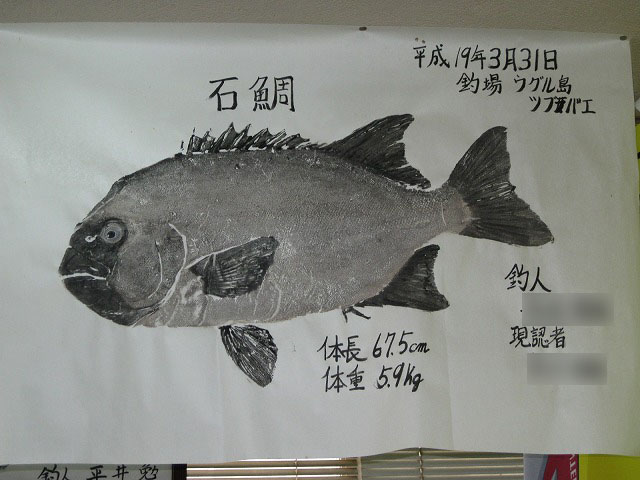 平成19年3月31日
釣場 ウグル島
石鯛
釣人
現認者
体長 67.5cm
体重 5.9kg
釣人 平井